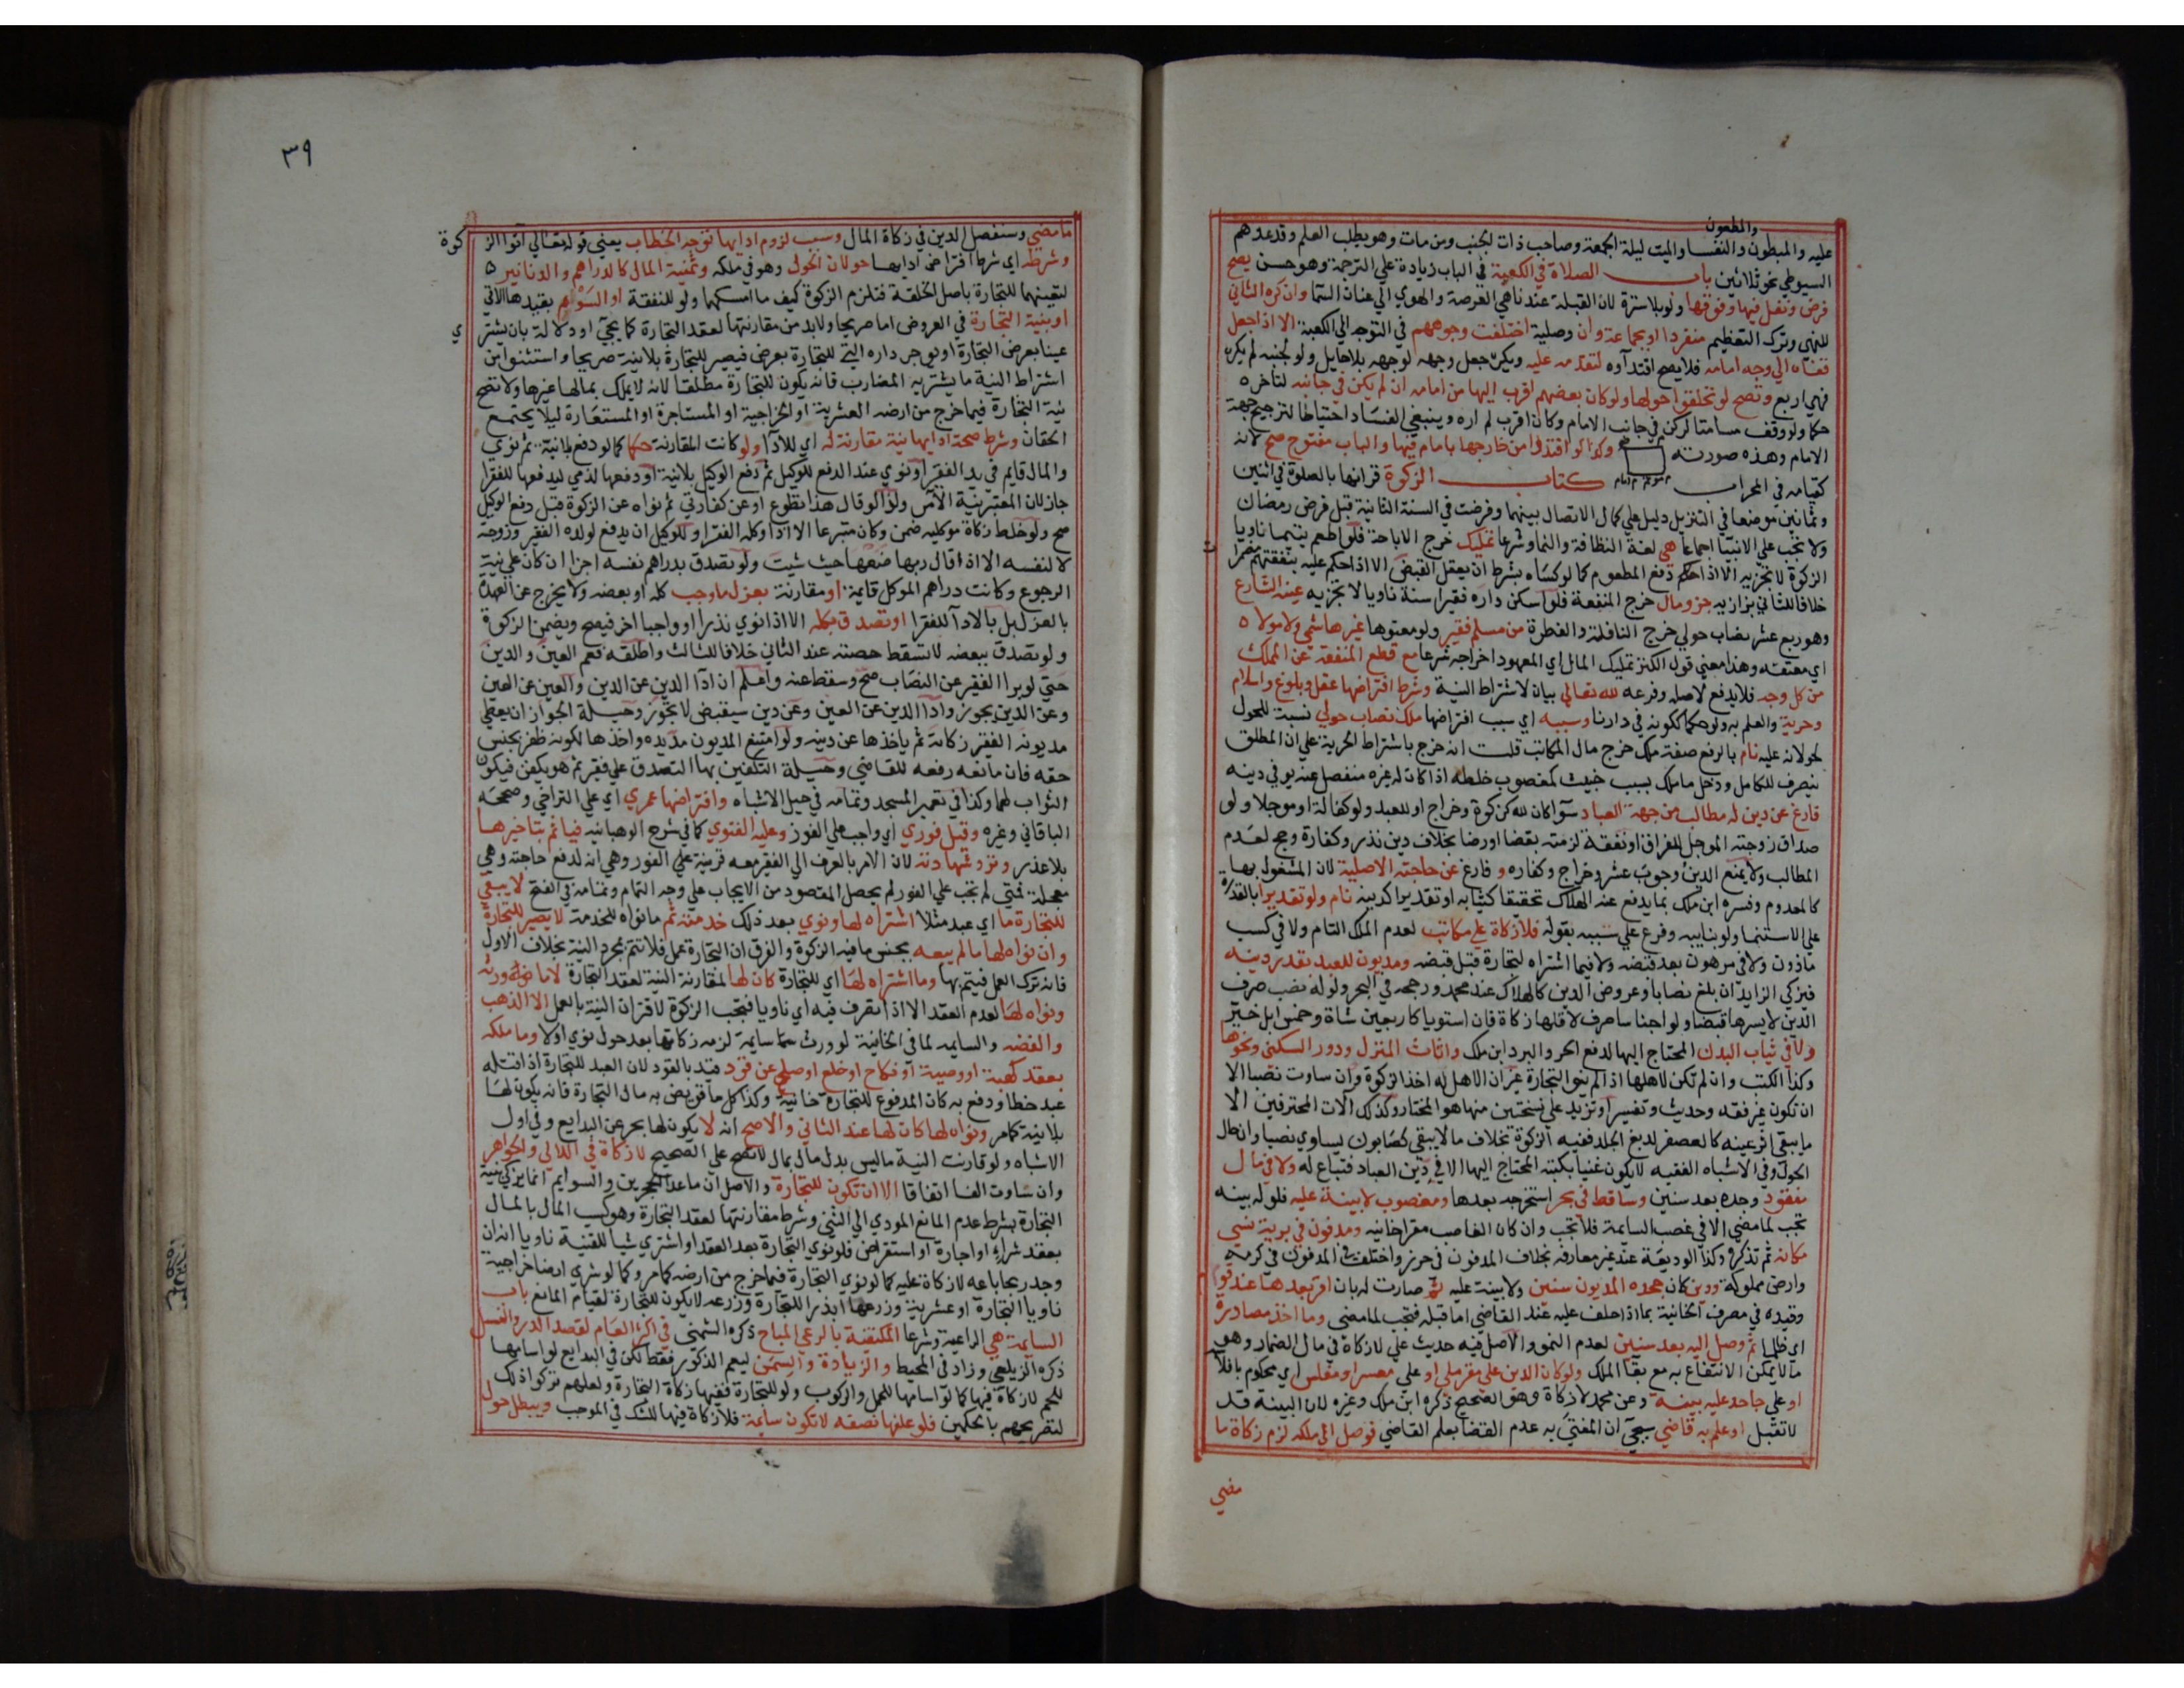 والمطعون
عليه والمبطون والنفسا والميت ليلة الجمعة وصاحب ذات الجنب ومن مات وهو يطلب العلم وقد عدهم
السيوطي نحو ثلاثين باب الصلاة في الكعبة في الباب زيادة علي الترجمة وهو حسن يصح
فرض ونفل فيها وفوقها ولو بلا سترة لان القبلة عندنا هي العرصة والهوي الي عنان السما وان كره الثاني
للنهي وترك التعظيم منفردا او بجماعة وان وصلية اختلفت وجوههم في التوجه الي الكعبة الا اذا جعل
قفاه الي وجه امامه فلا يصح اقتدآوه لتقدمه عليه ويكره جعل وجهه لوجهه بلا حايل ولو لجنبه لم يكره
فهي اربع وتصح لو تحلقوا حولها ولو كان بعضهم اقرب اليها من امامه ان لم يكن في جانبه لتاخره
حكما ولو وقف مسامتا لركن في جانب الامام وكان اقرب لم اره وينبغي الفساد احتياطا لترجيح جهة
الامام وهذه صورته وكذا لو اقتدوا من خارجها بامام فيها والباب مفتوح صح لانه
كقيامه في المحراب كتاب الزكوة قرانها بالصلوة في اثنين
وثمانين موضعا في التنزيل دليل علي كمال الاتصال بينهما وفرضت في السنة الثانية قبل فرض رمضان
ولا تجب علي الانبيآ اجماعا هي لغة النظافة والنما وشرعا تمليك خرج الاباحة فلو اطعم يتيما ناويا
الزكوة لا تجزيه الا اذا دفع المطعوم كما لو كساه بشرط ان يعقل القبض الا اذا حكم عليه بنفقتهم مضمرات
خلافا للثاني بزازيه جزو مال خرج المنفعة فلو اسكن داره فقيرا سنة ناويا لا تجزيه عينه الشارع
وهو ربع عشر نصاب حولي خرج النافلة والفطرة من مسلم فقير ولو معتوها غير هاشمي ولا مولاه
اي معتقه وهذا معني قول الكنز تمليك المال اي المعهود اخراجه شرعا مع قطع المنفعة عن المملك
من كل وجه فلا يدفع لاصله وفرعه لله تعالي بيان لاشتراط النية وشرط افتراضها عقل وبلوغ واسلام
وحرية والعلم به ولو حكما ككونه في دارنا وسببه اي سبب افتراضها ملك نصاب حولي نسبة للحول
لحولانه عليه تام بالرفع صفة ملك خرج مال المكاتب قلت انه خرج باشتراط الحرية علي ان المطلق
ينصرف للكامل ودخل ما ملك بسبب خبيث كمغصوب خلطه اذا كان له غيره منفصل عنه يوفي دينه
فارغ عن دين له مطالب من جهة العباد سوآ كان لله كزكوة وخراج او للعبد ولو كفالة او موجلا ولو
صداق زوجته الموجل للفراق او نفقة لزمته بقضا او رضا بخلاف دين نذر وكفارة وحج لعدم
المطالب ولا يمنع الدين وجوب عشر وخراج وكفاره وفارغ عن حاجته الاصلية لان المشغول بها
كالمعدوم وفسره ابن ملك بما يدفع عنه الهلاك تحقيقا كثيابه او تقديرا كدينه نام ولو تقديرا بالقدرة
علي الاستنما ولو بنايبه وفرع علي سببه بقوله فلا زكاة علي مكاتب لعدم الملك التام ولا في كسب
ماذون ولا في مرهون بعد قبضه ولا فيما اشتراه لتجارة قبل قبضه ومديون للعبد بقدر دينه
فيزكي الزايد ان بلغ نصابا وعروض الدين كالهلاك عند محمد ورجحه في البحر ولو له نصب صرف
الدين لايسرها قضا ولو اجناسا صرف لاقلها زكاة فان استويا كاربعين شاة وخمس ابل خير
ولا في ثياب البدن المحتاج اليها لدفع الحر والبرد ابن ملك واثاث المنزل ودور السكني ونحوها
وكذا الكتب وان لم تكن لاهلها اذا لم ينو التجارة غير ان الاهل له اخذ الزكوة وان ساوت نصبا الا
ان تكون غير فقه وحديث وتفسير او تزيد علي نسختين منها هو المختار وكذلك آلات المحترفين الا
ما يبقي اثر عينه كالعصفر لدبغ الجلد ففيه الزكوة بخلاف ما لا يبقي كصابون يساوي نصبا وان حال
الحول وفي الاشباه الفقيه لا يكون غنيا بكتبه المحتاج اليها الا في دين العباد فتباع له ولا في مال
مفقود وجده بعد سنين وساقط في بحر استخرجه بعدها ومغصوب لا بينة عليه فلو له بينه
تجب لما مضي الا في غصب السايمة فلا تجب وان كان الغاصب مقرا خانيه ومدفون في برية نسي
مكانه ثم تذكره وكذا الوديعة عند غير معارفه بخلاف المدفون في حرز واختلف في المدفون في كرم
وارض مملوكة ودين كان جحده المديون سنين ولا بينة عليه ثم صارت له بان اقر بعدها عند قوم
وقيده في مصرف الخانية بما اذا حلف عليه عند القاضي اما قبله فتجب لما مضي وما اخذ مصادرة
اي ظلما ثم وصل اليه بعد سنين لعدم النمو والاصل فيه حديث علي لا زكاة في مال الضمار وهو
ما لا يمكن الانتفاع به مع بقآ الملك ولو كان الدين علي مقر ملي او علي معسر او مفلس اي محكوم بافلاسه
او علي جاحد عليه بينة وعن محمد لا زكاة وهو الصحيح ذكره ابن ملك وغيره لان البينة قد
لا تقبل او علم به قاضي سيجئ ان المفتي به عدم القضا بعلم القاضي فوصل الي ملكه لزم زكاة ما
مضي
٣٩
ما مضي وسنفصل الدين في زكاة المال وسبب لزوم ادايها توجه الخطاب يعني قوله تعالي آتوا الزكوة
وشرطه اي شرط افتراض ادايها حولان الحول وهو في ملكه وثمنية المال كالدراهم والدنانير
لتعينهما للتجارة باصل الخلقة فتلزم الزكوة كيف ما امسكهما ولو للنفقة او السوم بقيدها الاتي
او بنية التجارة في العروض اما صريحا ولابد من مقارنتها لعقد التجارة كما يجئ او دلالة بان يشتري
عينا بعرض التجارة او يوجر داره التي للتجارة بعرض فيصير للتجارة بلا نية صريحا واستثنوا من
اشتراط النية ما يشتريه المضارب فانه يكون للتجارة مطلقا لانه لا يملك بمالها غيرها ولا تصح
نية التجارة فيما خرج من ارضه العشرية او الخراجية او المستاجرة او المستعارة ليلا يجتمع
الحقان وشرط صحة ادايها نية مقارنة له اي للادآ ولو كانت المقارنة حكما كما لو دفع بلا نية ثم نوي
والمال قايم في يد الفقير او نوي عند الدفع للوكيل ثم دفع الوكيل بلا نية او دفعها لذمي ليدفعها للفقرا
جاز لان المعتبر نية الآمر ولذا لو قال هذا تطوع او عن كفارتي ثم نواه عن الزكوة قبل دفع الوكيل
صح ولو خلط زكاة موكليه ضمن وكان متبرعا الا اذا وكله الفقرا وللوكيل ان يدفع لولده الفقير وزوجته
لا لنفسه الا اذا قال ربها ضعها حيث شيت ولو تصدق بدراهم نفسه اجزا ان كان علي نية
الرجوع وكانت دراهم الموكل قايمة او مقارنة بعزل ما وجب كله او بعضه ولا يخرج عن العهدة
بالعزل بل بالادآ للفقرا او تصدق بكله الا اذا نوي نذرا او واجبا اخر فيصح ويضمن الزكوة
ولو تصدق ببعضه لا تسقط حصته عند الثاني خلافا للثالث واطلقه فعم العين والدين
حتي لو برا الفقير عن النصاب صح وسقط عنه واعلم ان ادآ الدين عن الدين والعين عن العين
وعن الدين يجوز وادآ الدين عن العين وعن دين سيقبض لا يجوز وحيلة الجواز ان يعطي
مديونه الفقير زكاته ثم ياخذها عن دينه ولو امتنع المديون مد يده واخذها لكونه ظفر بجنس
حقه فان مانعه رفعه للقاضي وحيلة التكفين بها التصدق علي فقير ثم هو يكفن فيكون
الثواب لهما وكذا في تعمير المسجد وتمامه في حيل الاشباه وافتراضها عمري اي علي التراخي وصححه
الباقاني وغيره وقيل فوري اي واجب علي الفور وعليه الفتوي كما في شرح الوهبانيه فياثم بتاخيرها
بلا عذر وترد شهادته لان الامر بالصرف الي الفقير معه قرينة علي الفور وهي انه لدفع حاجته وهي
معجلة فمتي لم تجب علي الفور لم يحصل المقصود من الايجاب علي وجه التمام وتمامه في الفتح لا يبقي
للتجارة ما اي عبد مثلا اشتراه لها ونوي بعد ذلك خدمته ثم ما نواه للخدمة لا يصير للتجارة
وان نواه لها ما لم يبعه بجنس ما فيه الزكوة والفرق ان التجارة عمل فلا تتم بمجرد النية بخلاف الاول
فانه ترك العمل فيتم بها وما اشتراه لها اي للتجارة كان لها لمقارنة النية لعقد التجارة لا ما ورثه
ونواه لها لعدم العقد الا اذا تصرف فيه اي ناويا فتجب الزكوة لاقتران النية بالعمل الا الذهب
والفضه والسايمه لما في الخانية لو ورث سايمة لزمه زكاتها بعد حول نوي اولا وما ملكه
بعقد كهبة او وصية او نكاح او خلع او صلح عن قود قيد بالقود لان العبد للتجارة اذا قتله
عبد خطا ودفع به كان المدفوع للتجارة خانية وكذا كل ما قوبض به مال التجارة فانه يكون لها
بلا نية كما مر ونواه لها كان لها عند الثاني والاصح انه لا يكون لها بحر عن البدايع وفي اول
الاشباه ولو قارنت النية ما ليس بدل مال بمال لا تصح علي الصحيح لا زكاة في اللالي والجواهر
وان ساوت الفا اتفاقا الا ان تكون للتجارة والاصل ان ما عدا الحجرين والسوايم انما يزكي بنية
التجارة بشرط عدم المانع المودي الي الثني وشرط مقارنتها لعقد التجارة وهو كسب المال بالمال
بعقد شراء او اجارة او استقراض فلو نوي التجارة بعد العقد او اشتري شيا للقنية ناويا انه ان
وجد ربحا باعه لا زكاة عليه كما لو نوي التجارة فيما خرج من ارضه كما مر وكما لو شري ارضا خراجية
ناويا التجارة او عشرية وزرعها او بذرا للتجارة وزرعه لا يكون للتجارة لقيام المانع باب
السايمة هي الراعية وشرعا المكتفية بالرعي المباح ذكره الشمني في اكثر العام لقصد الدر والنسل
ذكره الزيلعي وزاد في المحيط والزيادة والسمن ليعم الذكور فقط لكن في البدايع لو اسامها
للحم لا زكاة فيها كما لو اسامها للحمل والركوب ولو للتجارة ففيها زكاة التجارة ولعلهم تركوا ذلك
لتصريحهم بالحكمين فلو علفها نصفه لا تكون سايمة فلا زكاة فيها للشك في الموجب ويبطل حول